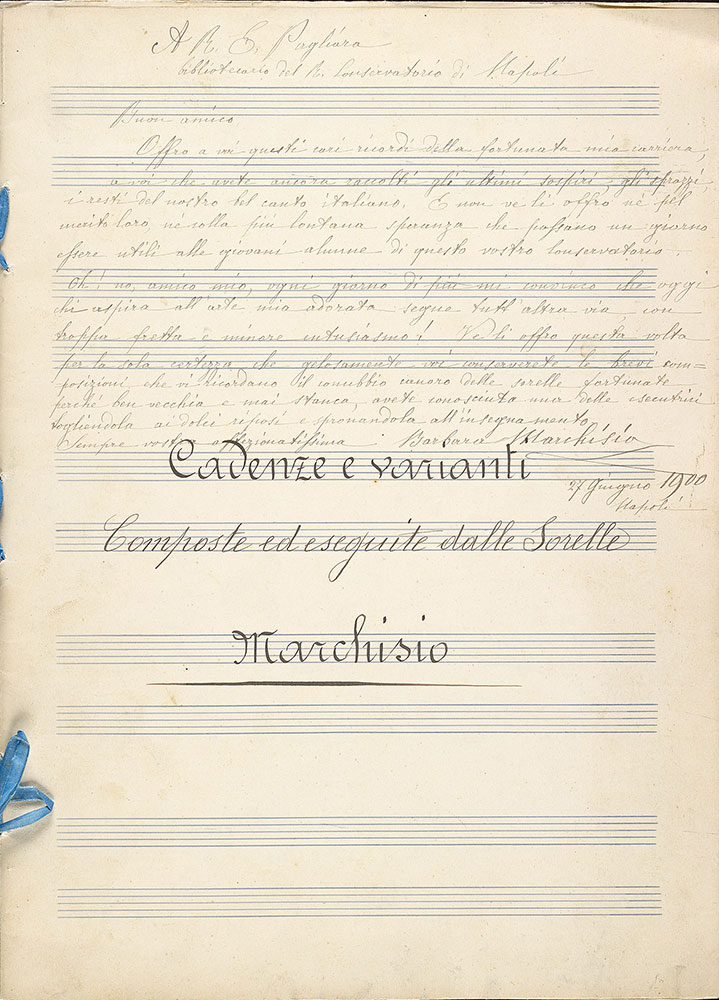 A R. E. Pagliara
bibliotecario del R. Conservatorio di Napoli
Buon amico
Offro a voi questi cari ricordi della fortunata mia carriera,
a voi che avete ancora raccolti gli ultimi sospiri, gli sprazzi,
i resti del nostro bel canto italiano. E non ve li offro nè pel
merito loro, nè colla più lontana speranza che possano un giorno
essere utili alle giovani alunne di questo vostro Conservatorio.
Oh! no, amico mio, ogni giorno di più mi convinco che oggi
chi aspira all'arte mia adorata segue tutt'altra via, con
troppa fretta e minore entusiasmo! Ve li offro questa volta
per la sola certezza che gelosamente voi conserverete le brevi com=
posizioni che vi ricordano il connubbio canoro delle sorelle fortunate
perché ben vecchia e mai stanca, avete conosciuta una delle esecutrici
togliendola ai dolci riposi e spronandola all'insegnamento.
Sempre vostra affezionatissima Barbara Marchisio
27 Giugno 1900
Napoli
Cadenze e varianti
Composte ed eseguite dalle Sorelle
Marchisio